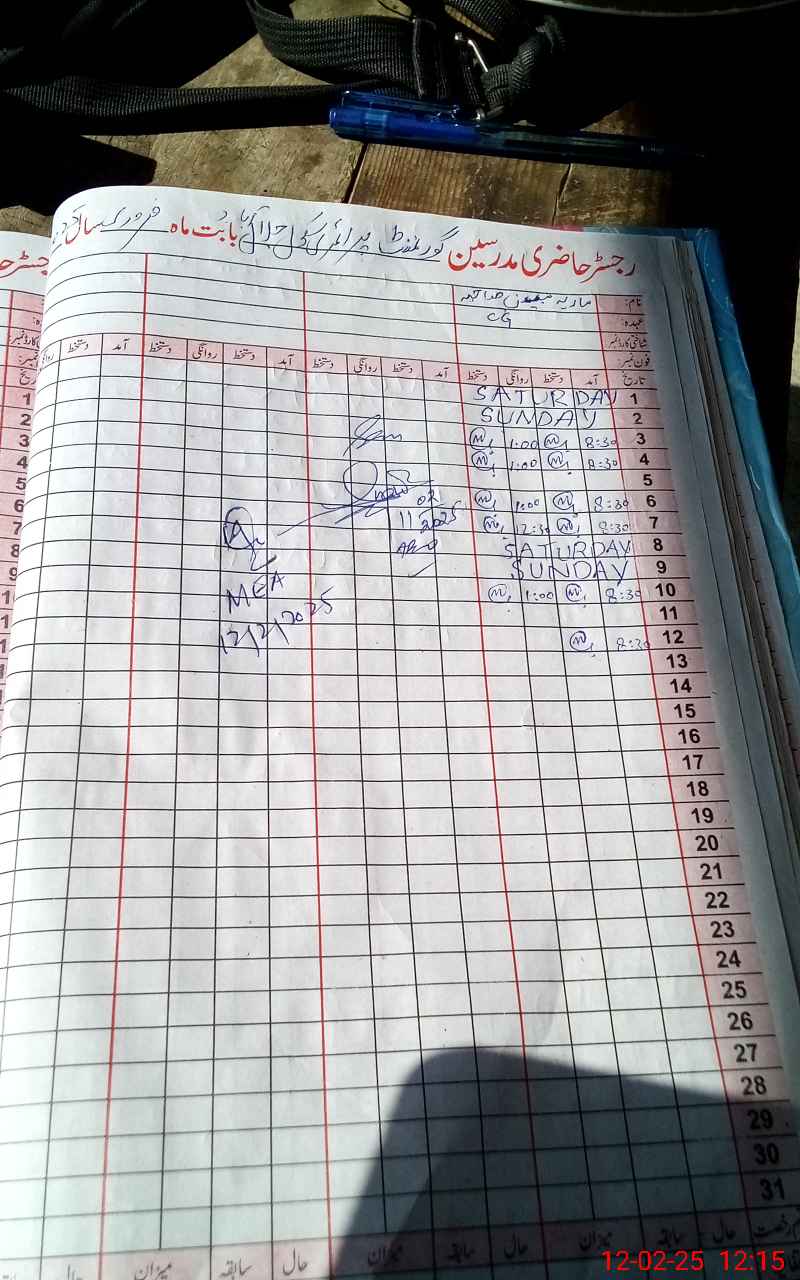 رجسٹر حاضری مدرسین گورنمنٹ پرائمری سکول بابت ماہ فروری سال
نام: ماریہ
عہدہ: CG
شناختی کارڈ نمبر:
فون نمبر:
تاریخ آمد دستخط روانگی دستخط آمد دستخط روانگی دستخط آمد دستخط روانگی دستخط آمد دستخط روانگی
1 SATURDAY
2 SUNDAY
3 8:30 1:00
4 8:30 1:00
5
6 8:30 1:00
7 8:30 12:30
02
11 2025
8 SATURDAY
9 SUNDAY
10 8:30 1:00
MEA
11
12 8:30
12/2/2025
13
14
15
16
17
18
19
20
21
22
23
24
25
26
27
28
29
30
31
رخصت حال سابقہ میزان حال سابقہ میزان حال سابقہ میزان حال سابقہ
12-02-25 12:15